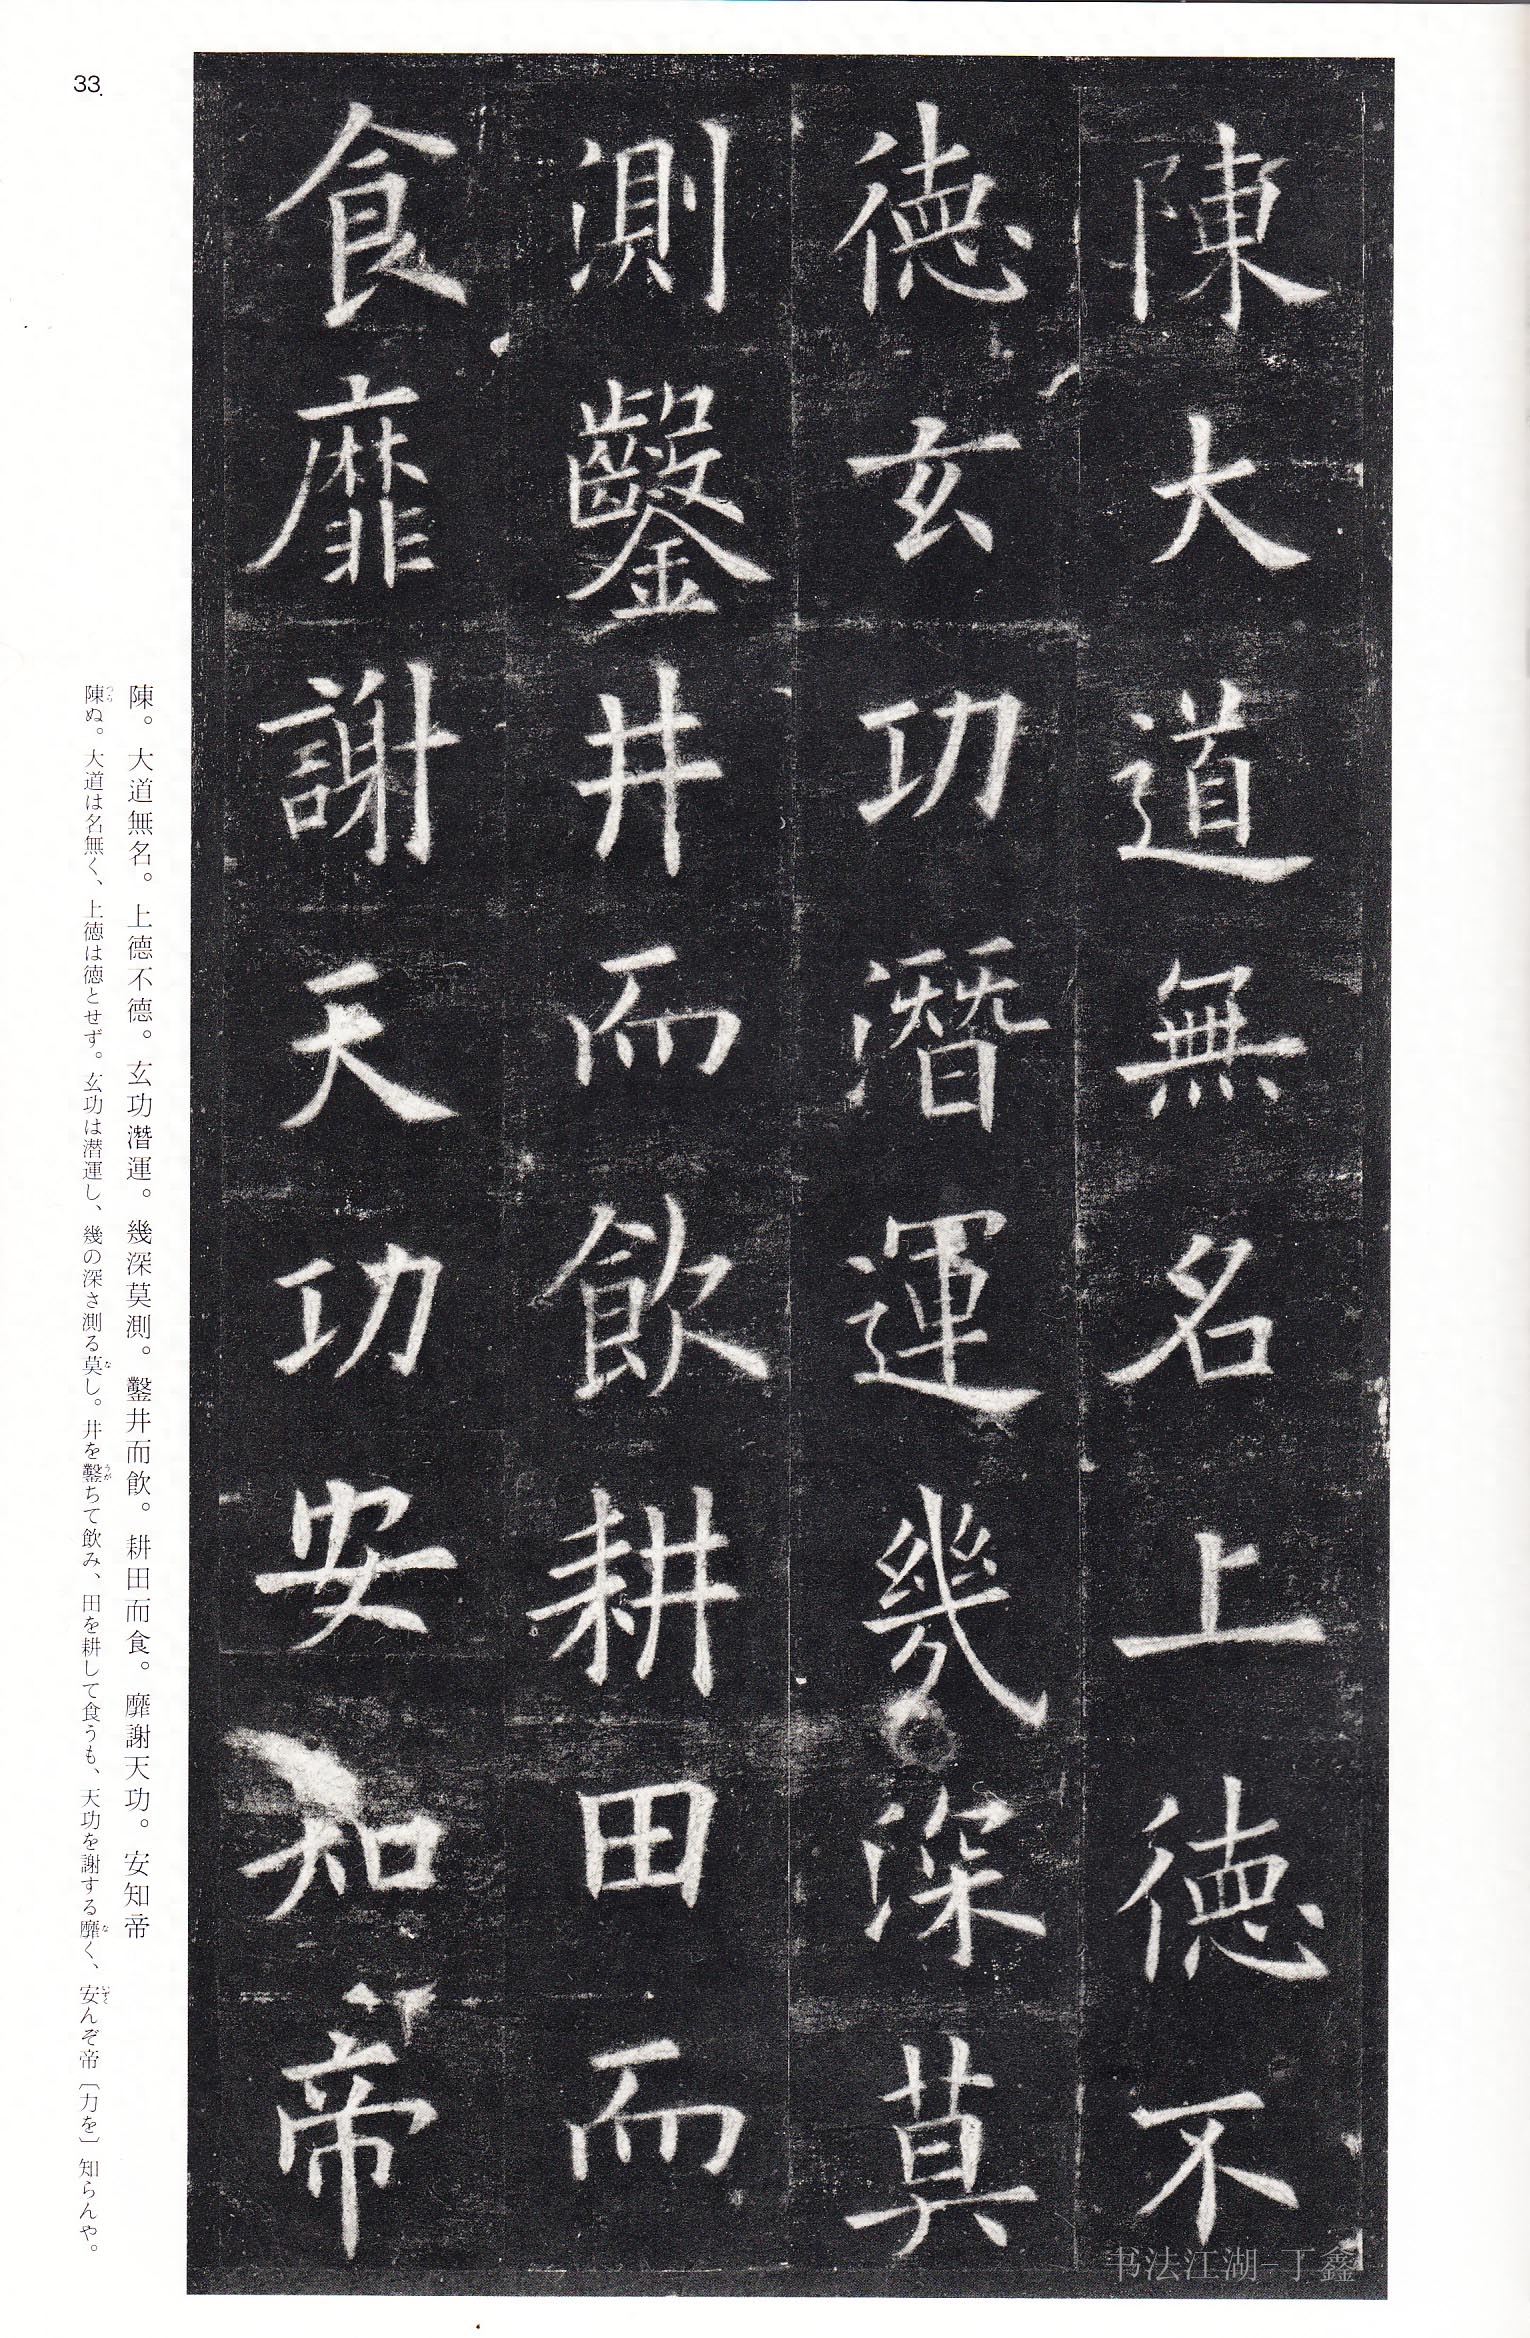 陳大道無名上德不
德玄功潛運幾深莫
測鑿井而飲耕田而
食靡謝天功安知帝
陳。大道無名。上德不德。玄功潛運。幾深莫測。鑿井而飲。耕田而食。靡謝天功。安知帝
陳ぬ。大道は名無く、上徳は徳とせず。玄功は潜運し、幾の深さ測る莫し。井を鑿ちて飲み、田を耕して食うも、天功を謝する靡く、安んぞ帝〔力を〕知らんや。
33
书法江湖-丁鑫